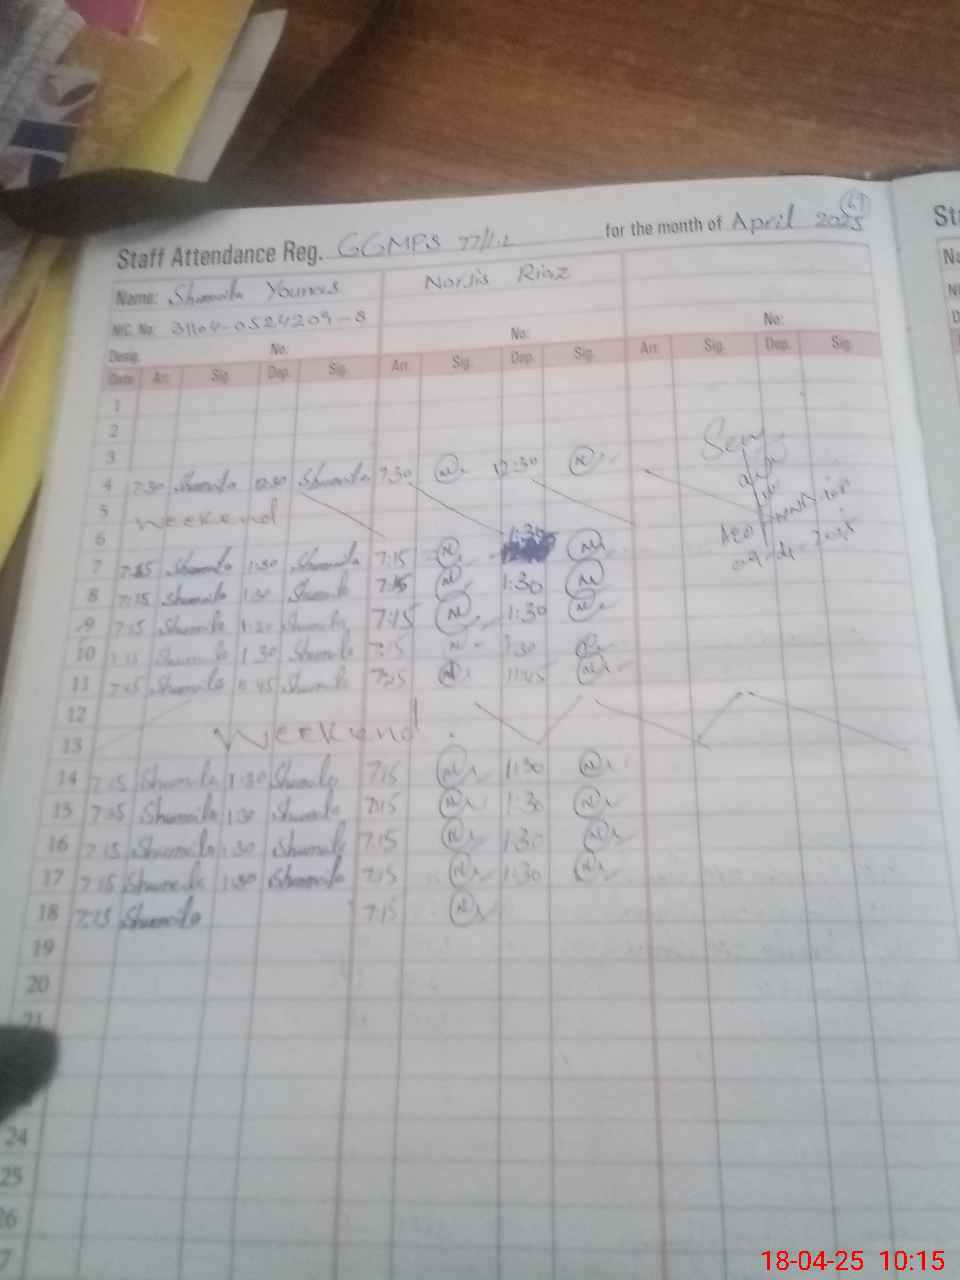 Staff Attendance Reg. GGMPS 77/1.L for the month of April 2025
Name: Shumaila Younus Narjis Riaz
NIC. No: 31104-0524209-8
Desig. No: No: No:
Date Arr. Sig. Dep. Sig. Arr. Sig. Dep. Sig. Arr. Sig. Dep. Sig.
1
2
3
4 7:30 Shumaila 12:30 Shumaila 7:30 N 12:30 N
5 Weekend
6 1:30
7 7:15 Shumaila 1:30 Shumaila 7:15 N N
8 7:15 Shumaila 1:30 Shumaila 7:15 N 1:30 N
9 7:15 Shumaila 1:30 Shumaila 7:15 N 1:30 N
10 7:15 Shumaila 1:30 Shumaila 7:15 N 1:30
11 7:15 Shumaila 11:45 Shumaila 7:15 N 11:45 N
12
13 Weekend
14 7:15 Shumaila 1:30 Shumaila 7:15 N 1:30 N
15 7:15 Shumaila 1:30 Shumaila 7:15 N 1:30 N
16 7:15 Shumaila 1:30 Shumaila 7:15 N 1:30 N
17 7:15 Shumaila 1:30 Shumaila 7:15 N 1:30 N
18 7:15 Shumaila 7:15 N
19
20
21
24
25
26
7
18-04-25 10:15